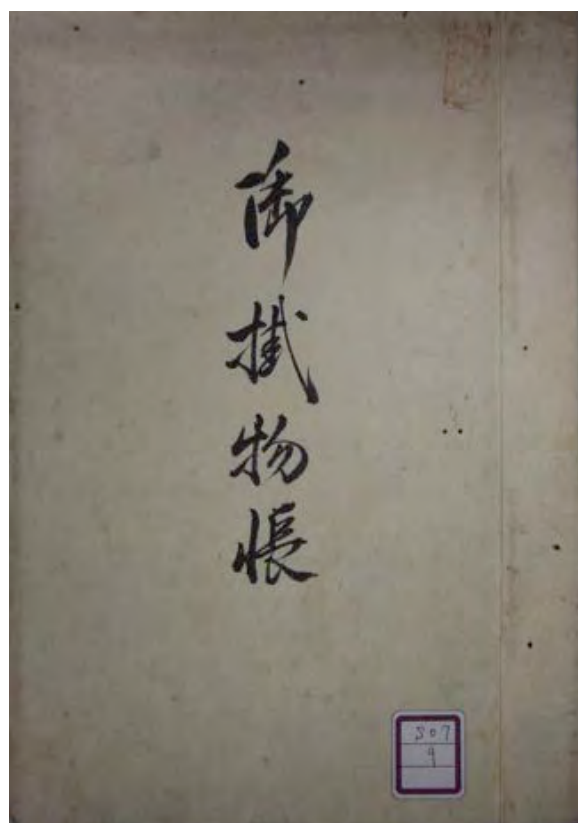 御掛物帳
307
9